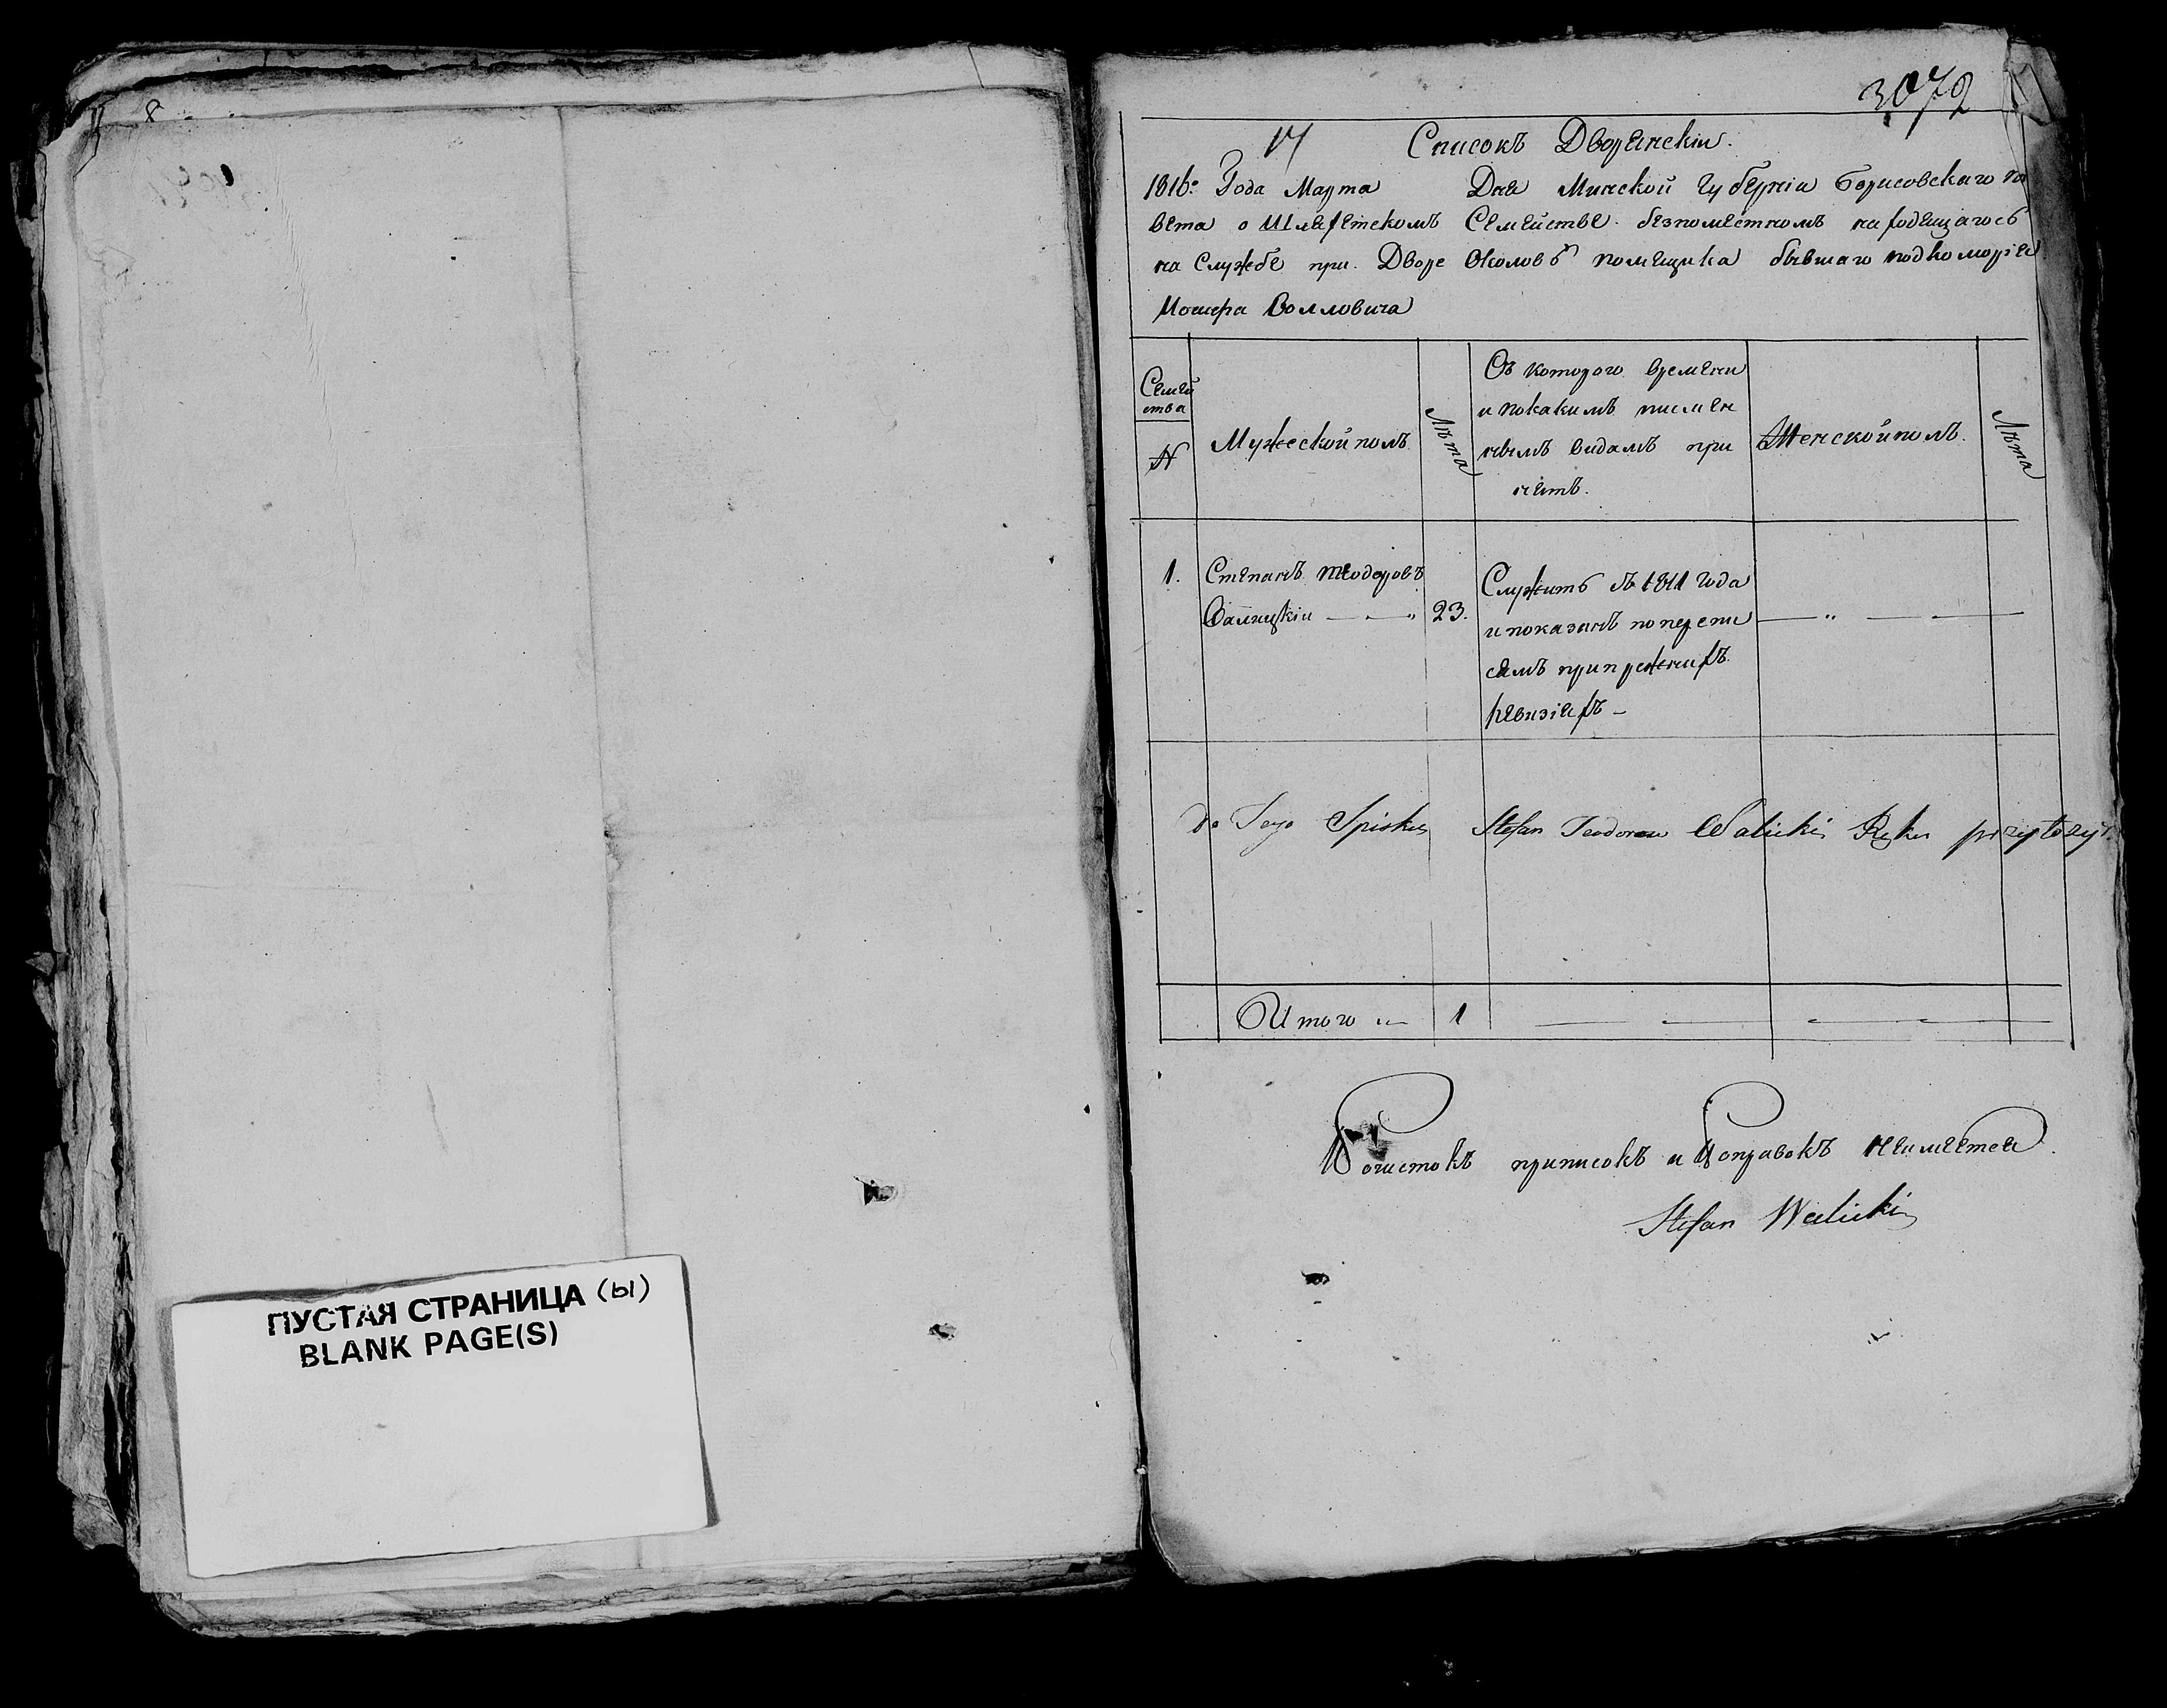 8
ПУСТАЯ СТРАНИЦА (ы)
BLANK PAGE(S)
3072
17 Списокъ Дворянскій.
1816: Года Марта Дня Минской Губерніи Борисовскаго По
вета о Шляхетскомъ Семействе безпоместномъ находящагось
на Службе при Дворе Околовѣ помещика бывшаго подкоморія
Иосифа Волловича
Семей
ства
N
Мужеской полъ
Лѣта
Съ котораго времени
и покакимъ писмен
нымъ видамъ при
нетъ.
Женской полъ.
Лѣта
1. Степанъ Теодоровъ
Валицкіи — — „ 23.
Служитъ съ 1811 Года
и показанъ по перепи
сямъ при прежнихъ
ревизіяхъ —
— „ — —
do Tego Spisku Stefan Teodorow Walicki Rękę przyłożył.
Итого „— 1 — — — —
Почистокъ приписокъ и Поправокъ неиметея
Stefan Walicki